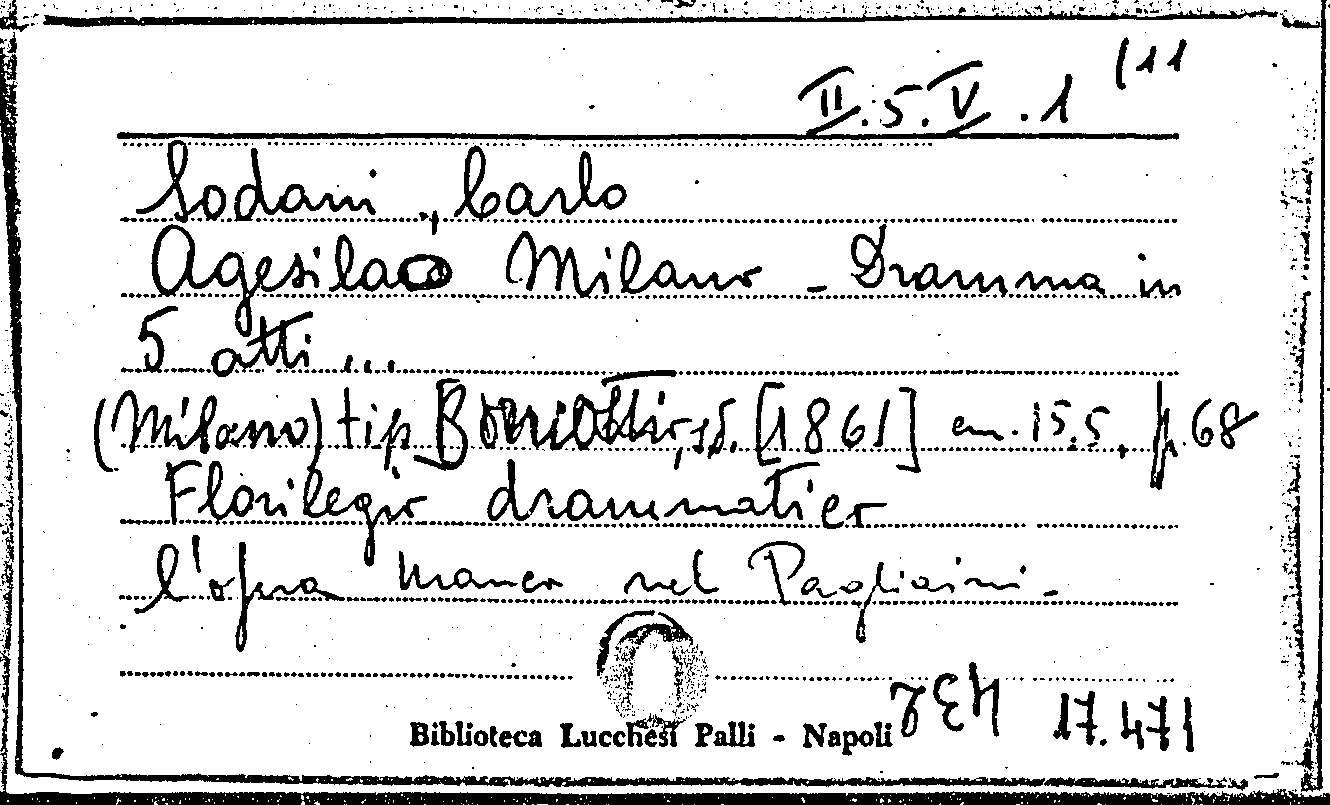 II.5.V.1 (11
Sodani, Carlo
Agesilao Milano - Dramma in
5 atti...
(Milano) tip. Borrotti, s.d. [1861] cm. 15.5, p. 68
Florilegio drammatico
l'opera manca nel Pagliaini.
Biblioteca Lucchesi Palli - Napoli
17.471